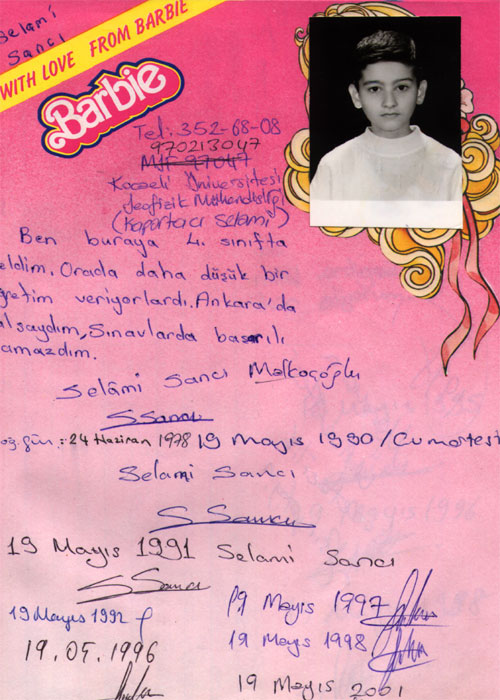 Selami
Sancı
WITH LOVE FROM BARBIE
Barbie
Tel: 352-68-08
970213047
Kocaeli Üniversitesi
Jeofizik Mühendisliği
(Kaportacı Selami)
Ben buraya 4. sınıfta
eldim. Orada daha düşük bir
ğretim veriyorlardı. Ankara'da
alsaydım, Sınavlarda başarılı
amazdım.
Selâmi Sancı Malkoçoğlu
SSancı
oğ. gün.: 24 Haziran 1978 19 Mayıs 1990/Cumartesi
Selami Sancı
S Sancı
19 Mayıs 1991 Selami Sancı
S Sancı
19 Mayıs 1992
19 Mayıs 1997
19.05.1996
19 Mayıs 1998
19 Mayıs 2001